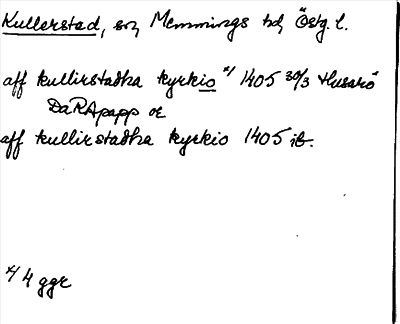 Kullerstad, sn, Memmings hd, Östg. l.
aff kullirstadha kyrkio x/ 1405 30/3 Husarö
DaRApapp or
aff kullirstadha kyrkio 1405 ib.
x/ 4 ggr